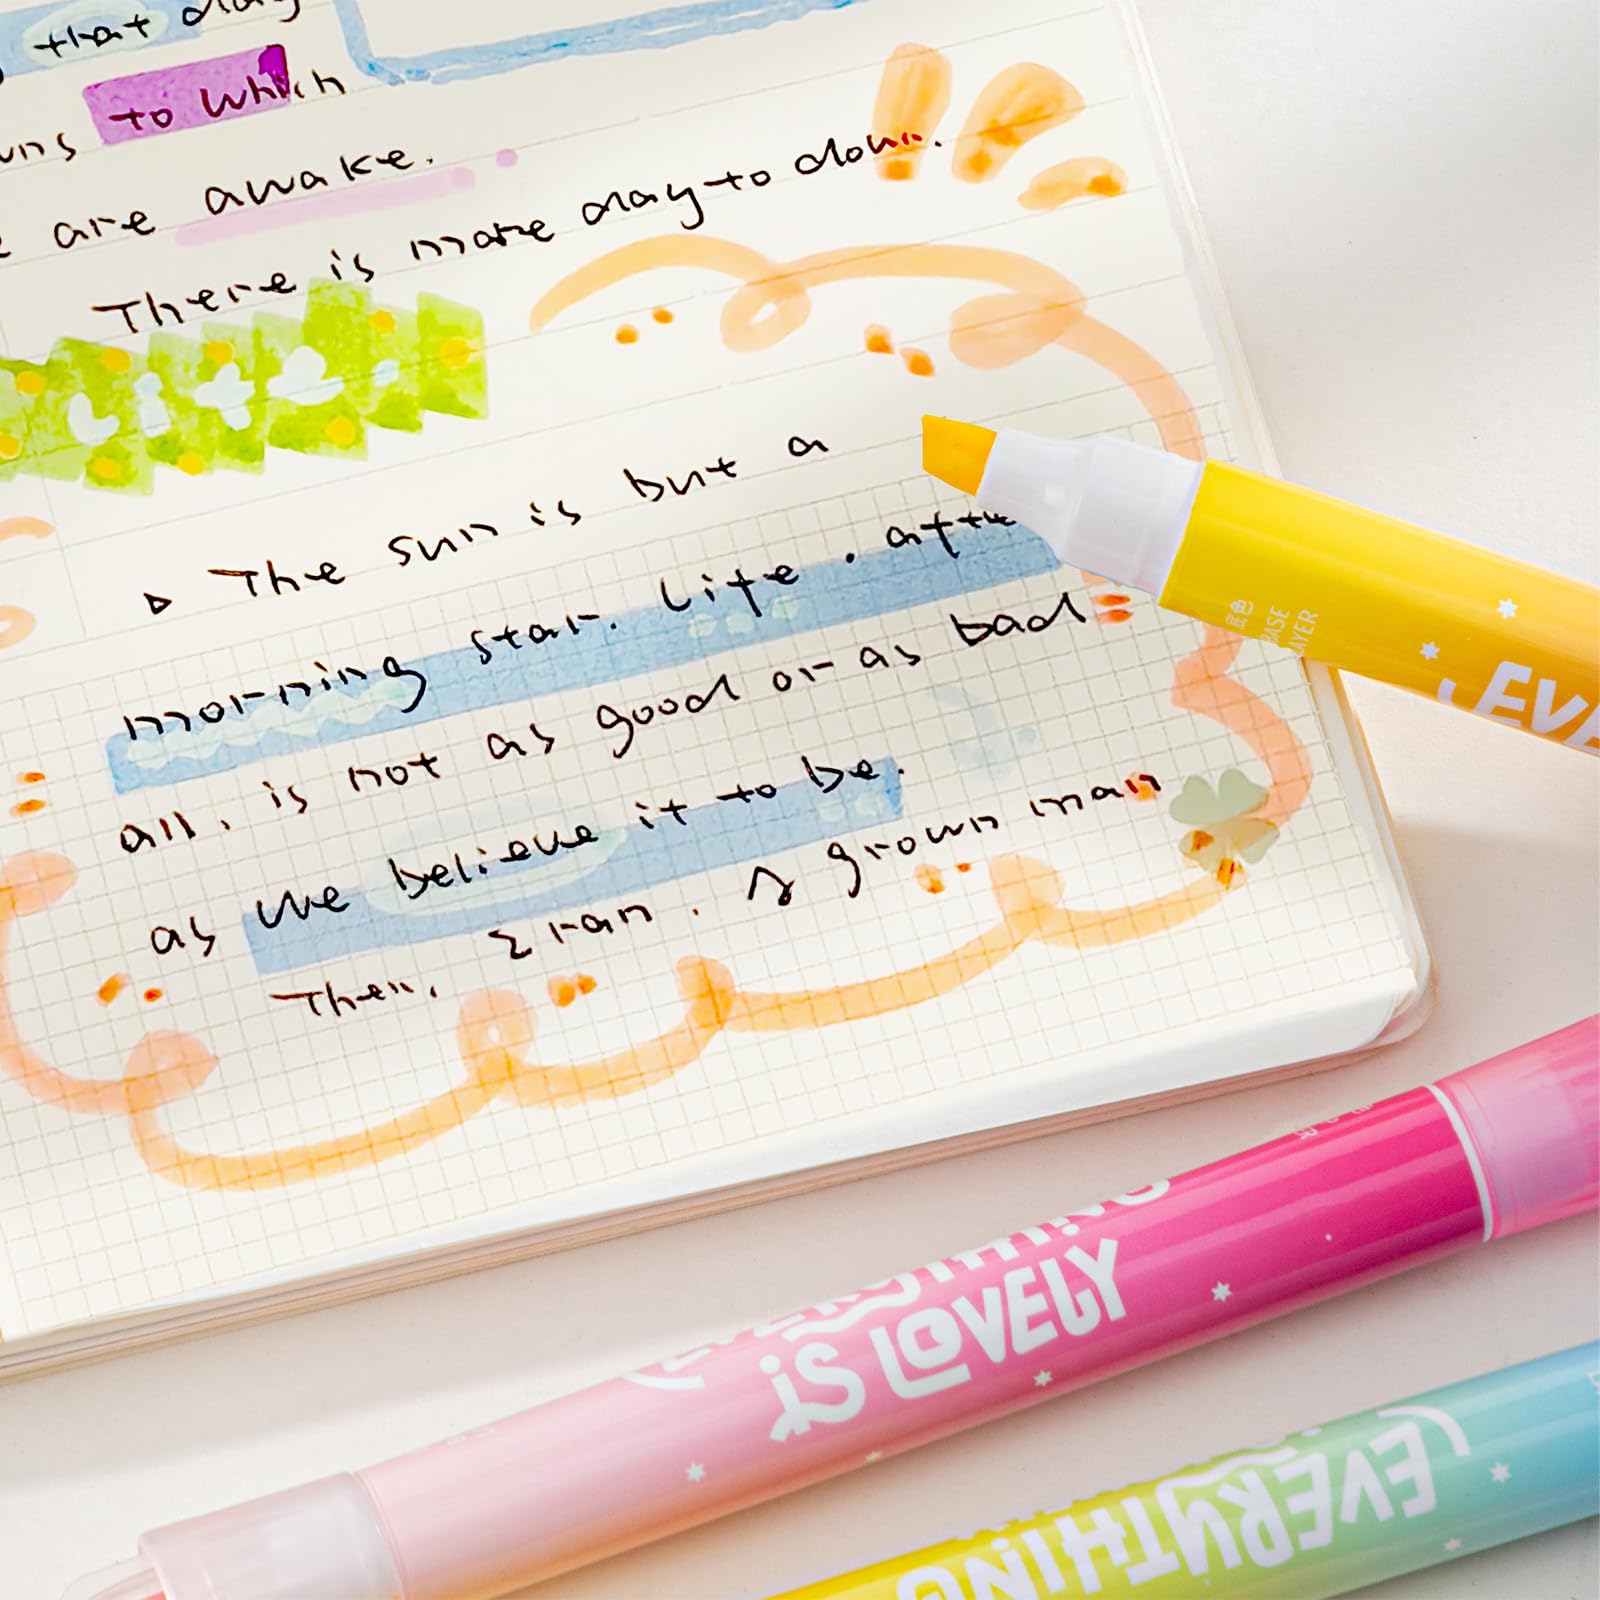 that day
to which
are awake.
There is more day to down.
Life.
▷ The sun is but a
morning star. Life. after
all, is not as good or as bad
as we believe it to be.
Then, I ran. A grown man
底色
BASE
LAYER
EVE
EVERYTHING
iS LOVELY
EVERYTHING